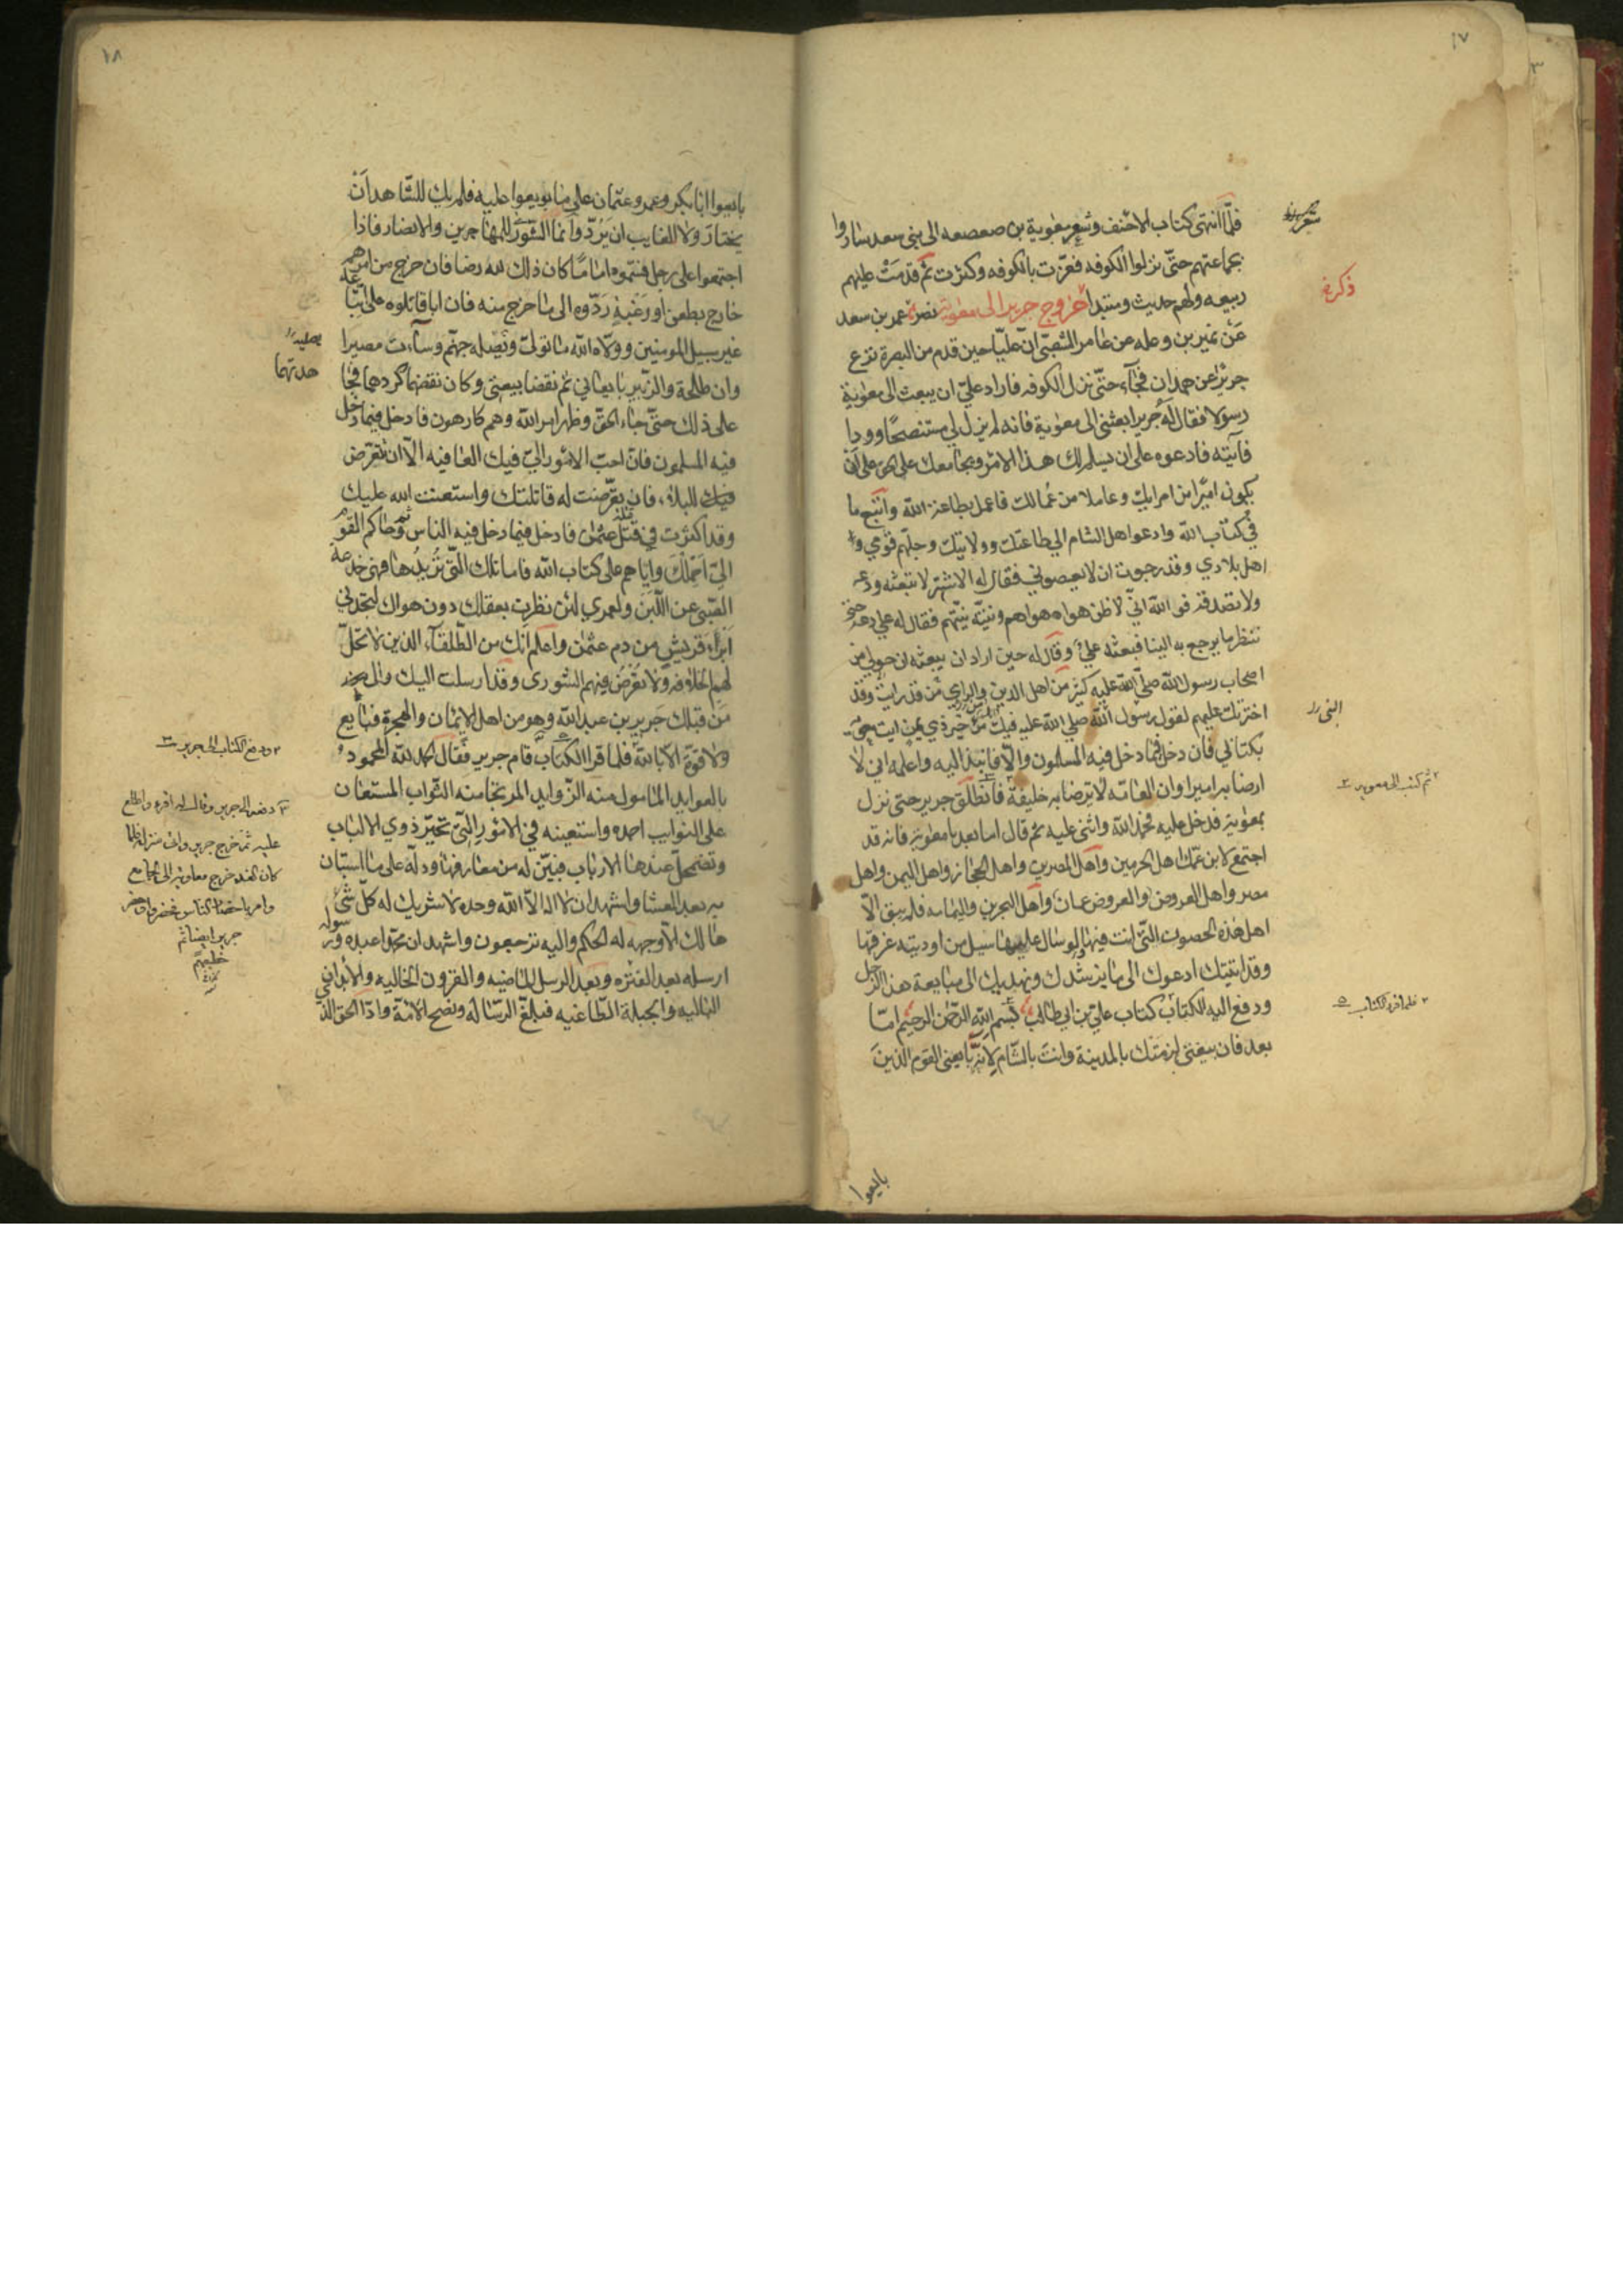 ١٧
فلما انتهى كتاب الاحنف وشعر معوية بن صعصعه الى بنى سعد ساروا
بجماعتهم حتى نزلوا الكوفه فعزت بالكوفه وكثرت ثم قدمت عليهم
ربيعه ولهم حديث ومبتدا خروج جرير الى معوية نصر عمر بن سعد
عن نمير بن وعله عن عامر الشعبى ان عليا حين قدم من البصرة نزع
جريرا عن همدان فجآء حتى نزل الكوفه فاراد على ان يبعث الى معوية
رسولا فقال له جرير ابعثنى الى معوية فانه لم يزل لى مستنصحا وودا
فآتيه فادعوه على ان يسلم لك هذا الامر ويجامعك على الحق على ان
يكون اميرا من امرايك وعاملا من عمالك ما عمل بطاعة الله واتبع ما
فى كتاب الله وادعوا اهل الشام الى طاعتك وولايتك وجلهم قومى و
اهل بلادى وقد رجوت ان لا يعصونى فقال له الاشتر لا تبعثه ودعه
ولا تصدقه فو الله انى لاظن هواه هواهم ونيته نيتهم فقال له على دعه حتى
ننظر ما يرجع به الينا فبعثه على وقال له حين اراد ان يبعثه ان حولى من
اصحاب رسول الله صلى الله عليه كثير من اهل الدين والراى من قد رايت وقد
اخترتك عليهم لقول رسول الله صلى الله عليه فيك من خير ذى يمن ايت معوية
بكتابى فان دخل فيما دخل فيه المسلمون والا فانبذ اليه واعلمه انى لا
ارضا به اميرا وان العامه لا ترضا به خليفة فانطلق جرير حتى نزل
بمعوية فدخل عليه فحمد الله واثنى عليه ثم قال اما بعد يا معوية فانه قد
اجتمع لابن عمك اهل الحرمين واهل المصرين واهل الحجاز واهل اليمن واهل
مصر واهل العروض والعروض عمان واهل البحرين واليمامه فلم يبق الا
اهل هذه الحصون التى انت فيها لو سال عليها سيل من اوديته غرقها
وقد اتيتك ادعوك الى ما يرشدك ويهديك الى مبايعة هذا الرجل
ودفع اليه الكتاب كتاب على بن ابى طالب بسم الله الرحمن الرحيم اما
بعد فان بيعتى لزمتك بالمدينة وانت بالشام لانه بايعنى القوم الذين
بايعوا
ذكره
ثم كتب الى معويه
فلما قرء الكتاب
١٨
بايعوا ابا بكر وعمر وعثمان على ما بويعوا عليه فلم يك للشاهد ان
يختار ولا للغايب ان يرد وانما الشورى للمهاجرين والانصار فاذا
اجتمعوا على رجل فسموه اماما كان ذلك لله رضا فان خرج من امرهم
خارج بطعن او رغبة ردوه الى ما خرج منه فان ابا قاتلوه على اتباعه
غير سبيل المومنين وولاه الله ما تولى ونصله جهنم وسآءت مصيرا
وان طلحة والزبير بايعانى ثم نقضا بيعتى وكان نقضهما كردهما فجا
على ذلك حتى جاء الحق وظهر امر الله وهم كارهون فادخل فيما دخل
فيه المسلمون فان احب الامور الى فيك العافيه الا ان تتعرض
للبلاء فان تعرضت له قاتلتك واستعنت الله عليك
وقد اكثرت فى قتلة عثمان فادخل فيما دخل فيه الناس ثم حاكم القوم
الى احملك واياهم على كتاب الله فاما تلك التى تريدها فهى خدعة
الصبى عن اللبن ولعمرى لئن نظرت بعقلك دون هواك لتجدنى
ابرأ قريش من دم عثمن واعلم انك من الطلقآء الذين لا تحل
لهم الخلافه ولا تعرض فيهم الشورى وقد ارسلت اليك والى
من قبلك جرير بن عبد الله وهو من اهل الايمان والهجرة فبايع
ولا قوة الا بالله فلما قرا الكتاب قام جرير فقال الحمد لله المحمود
بالعوايد المامول منه الزوايد المرتجا منه الثواب المستعان
على النوايب احمده واستعينه فى الامور التى تحير ذوى الالباب
وتضمحل عندها الارباب
به بعد العشا واشهد ان لا اله الا الله وحده لا شريك له كل شئ
هالك الا وجهه له الحكم واليه ترجعون واشهد ان محمدا عبده ورسوله
ارسله بعد الفتره وبعد الرسل الماضيه والقرون الخاليه والابدان
الباليه والجبلة الطاغيه فبلغ الرساله ونصح الامة وادا الحق الذ
يصليه
ودفع الكتاب الى جرير
دفعه الى جرير وقال له اقره واطلع
عليه ثم خرج جرير واتى منزله فلما
كان الغد خرج معاويه الى الجامع
وامر باحضار الناس فحضر وا وحضر
جرير ايضا ثم
خطبهم